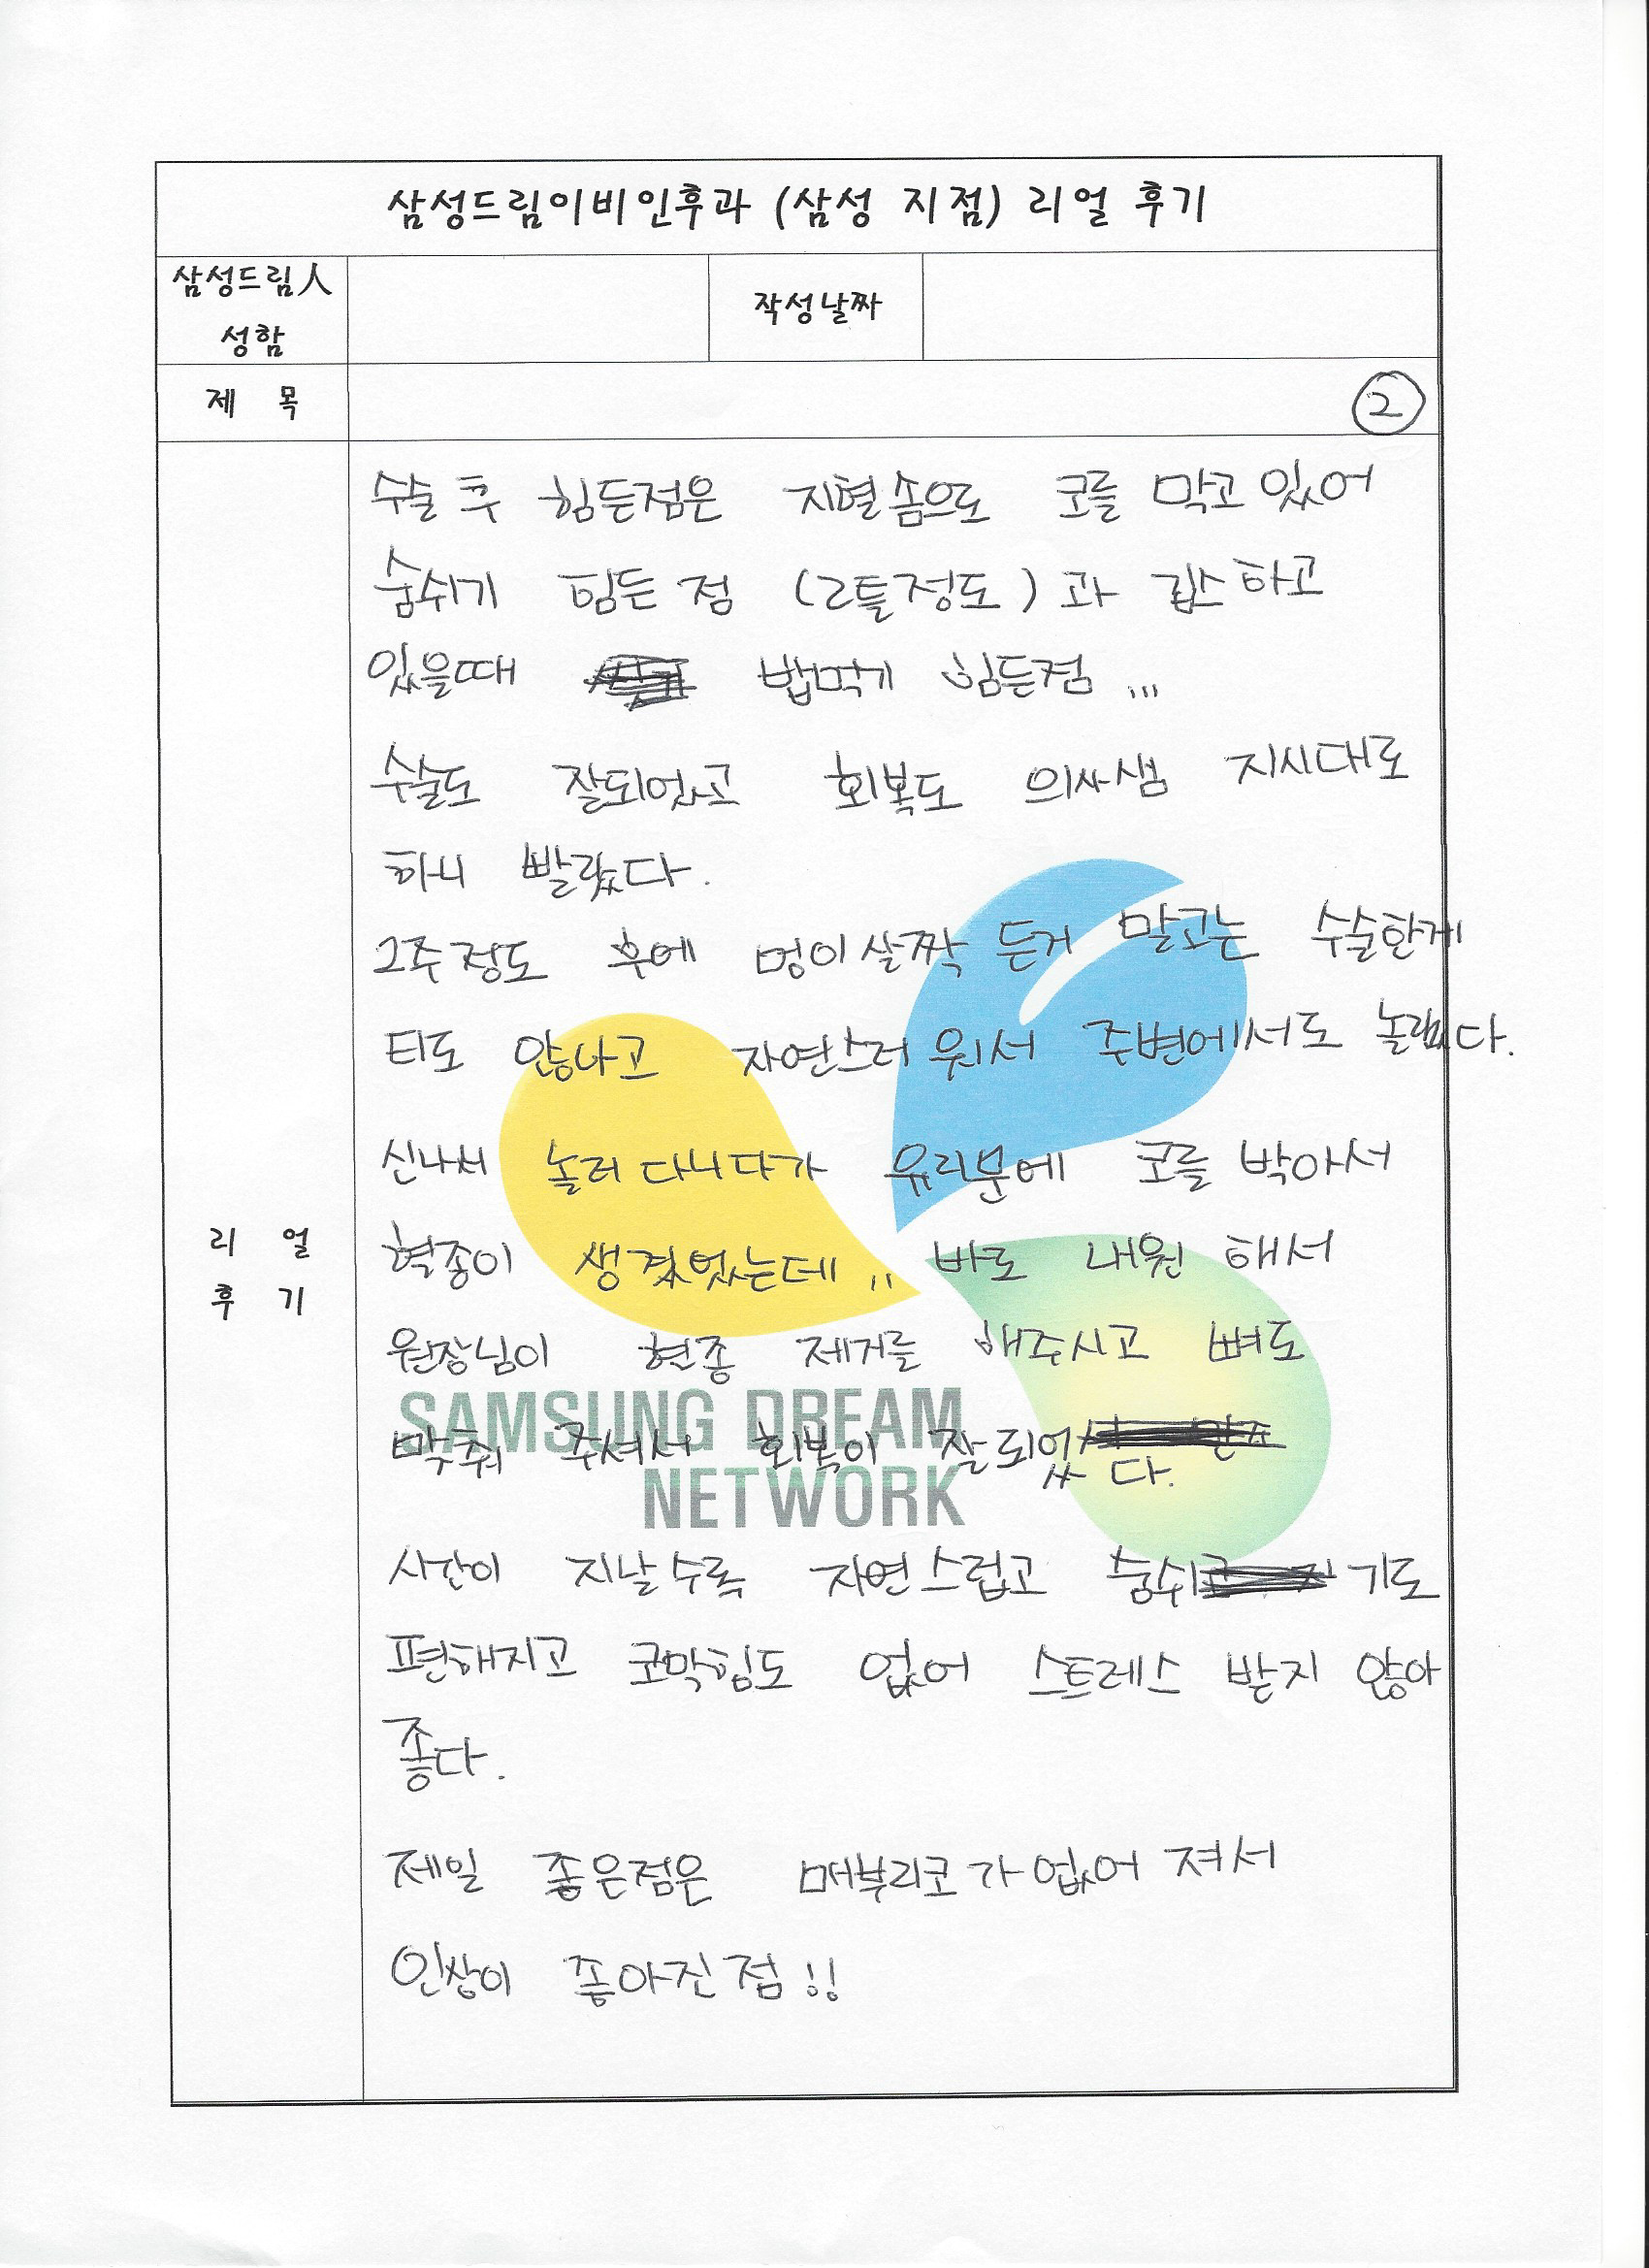 삼성드림이비인후과 (삼성 지점) 리얼 후기
삼성드림人
성함
작성날짜
제 목
②
수술 후 힘든점은 지혈솜으로 코를 막고 있어
숨쉬기 힘든 점 (2틀정도) 과 깁스하고
있을때 밥먹기 힘든점 ...
수술도 잘되었고 회복도 의싸샘 지시대로
하니 빨랐다.
2주정도 후에 멍이 살짝 든거 말고는 수술한게
티도 않나고 자연스러워서 주변에서도 놀랬다.
신나서 놀러 다니다가 유리문에 코를 박아서
혈종이 생겼었는데 .. 바로 내원 해서
원장님이 현종 제거를 해주시고 뼈도
맞춰 주셔서 회복이 잘 되었
다.
시간이 지날수록 자연스럽고 숨쉬기도
편해지고 코막힘도 없어 스트레스 받지 않아
좋다.
제일 좋은점은 매부리코가 없어 져서
인상이 좋아진 점 !!
리 얼
후 기
SAMSUNG DREAM
NETWORK